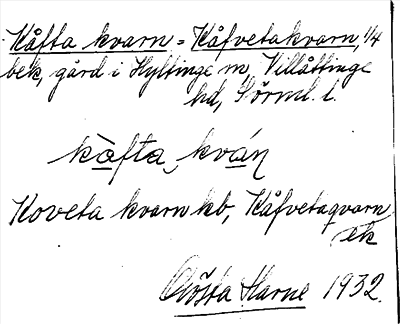 Kåfta kvarn = Kåfvetakvarn, 1/4
bek, gård i Hyltinge sn, Villåttinge
hd, Sörml. l.
kȧ̀fta‿kván
Koveta kvarn kb, Kåfvetaqvarn
ek
Gösta Harne 1932.